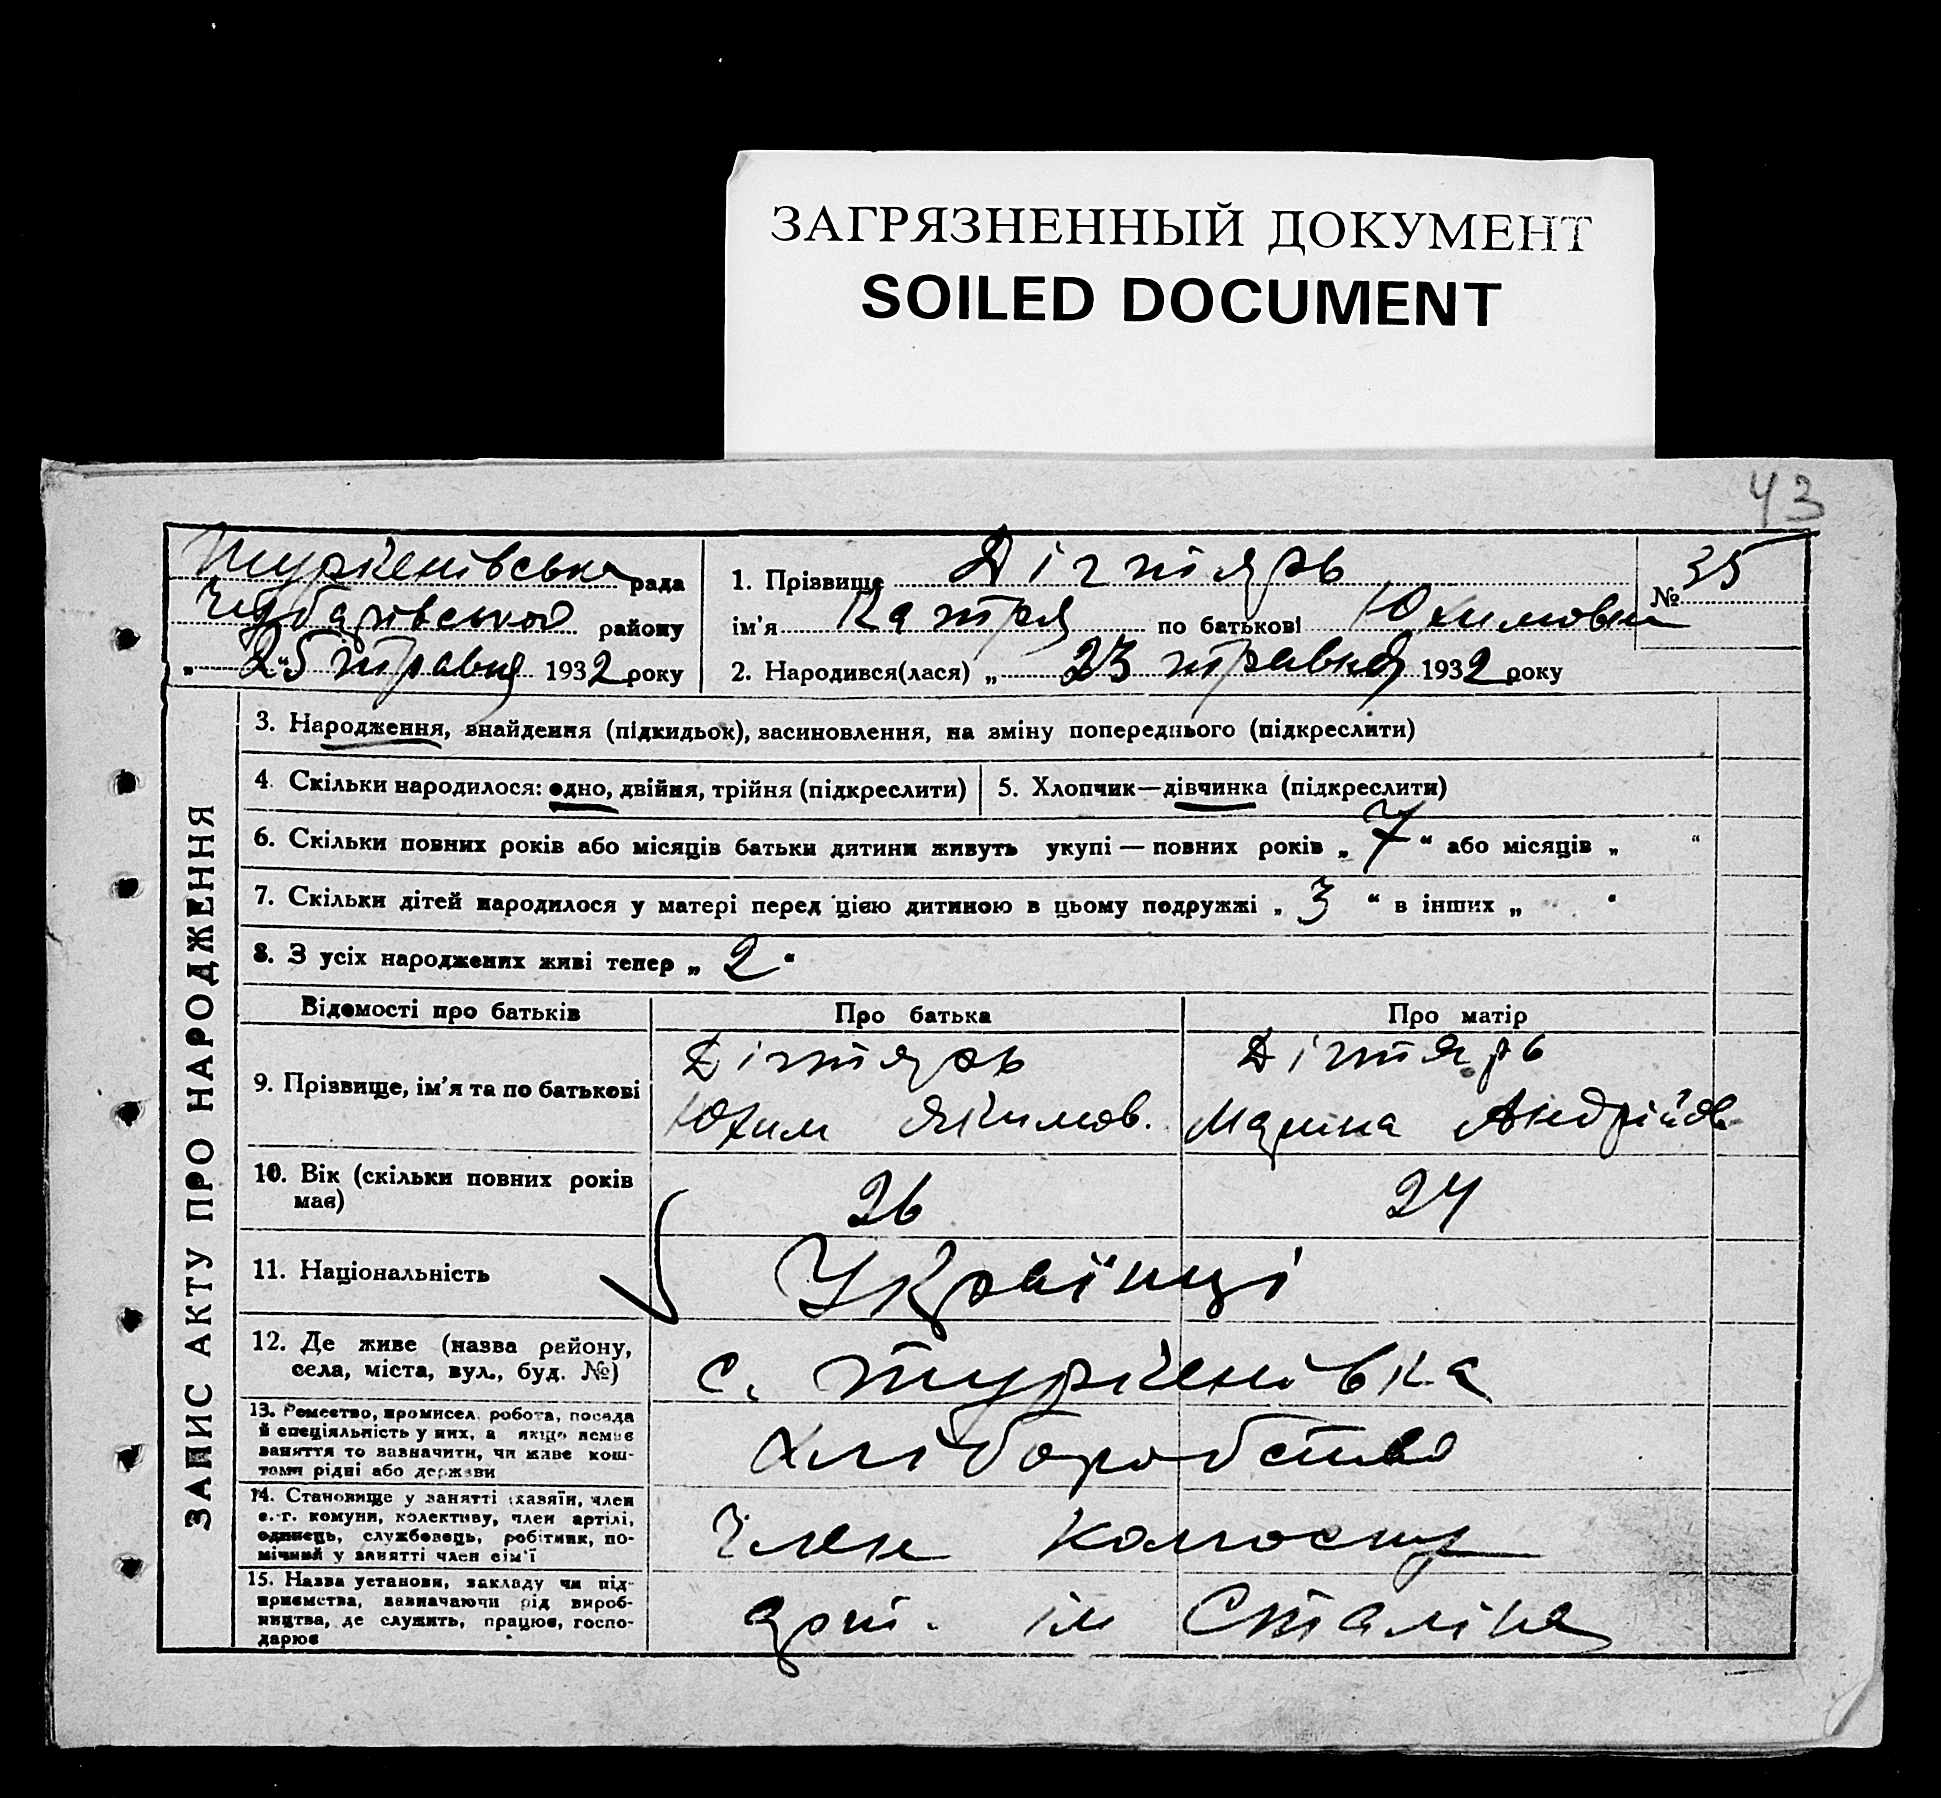 ЗАГРЯЗНЕННЫЙ ДОКУМЕНТ
SOILED DOCUMENT
43
Туркенівська рада
Чубарівського району
„ 25 " травня 1932 року
1. Прізвище Дігтярь
№ 35
ім'я Катря по батькові Юхимовна
2. Народився(лася) „ 23 травня 1932 року
ЗАПИС АКТУ ПРО НАРОДЖЕННЯ
3. Народження, знайдення (підкидьок), засиновлення, на зміну попереднього (підкреслити)
4. Скільки народилося: одно, двійня, трійня (підкреслити)
5. Хлопчик—дівчинка (підкреслити)
6. Скільки повних років або місяців батьки дитини живуть укупі — повних років „ 7 " або місяців „ "
7. Скільки дітей народилося у матері перед цією дитиною в цьому подружжі „ 3 " в інших „ "
8. З усіх народжених живі тепер „ 2 "
Відомості про батьків
Про батька
Про матір
9. Прізвище, ім'я та по батькові
Дігтярь
Юхим Якимов.
Дігтярь
Марина Андрійов
10. Вік (скільки повних років
має)
26
24
11. Національність
Українці
12. Де живе (назва району,
села, міста, вул., буд. №)
с. Туркенівка
13. Ремество, промисел, робота, посада
й спеціяльність у них, а якщо немає
заняття то зазначити, чи живе кош-
тами рідні або держави
Хліборобство
14. Становище у занятті (хазяїн, член
с.-г. комуни, колективу, член артілі,
одинець, службовець, робітник, по-
мічний у занятті член сім'ї
Член колгоспу
15. Назва установи, закладу чи під-
приємства, зазначаючи рід вироб-
ництва, де служить, працює, госпо-
дарює
арт. ім Сталіна